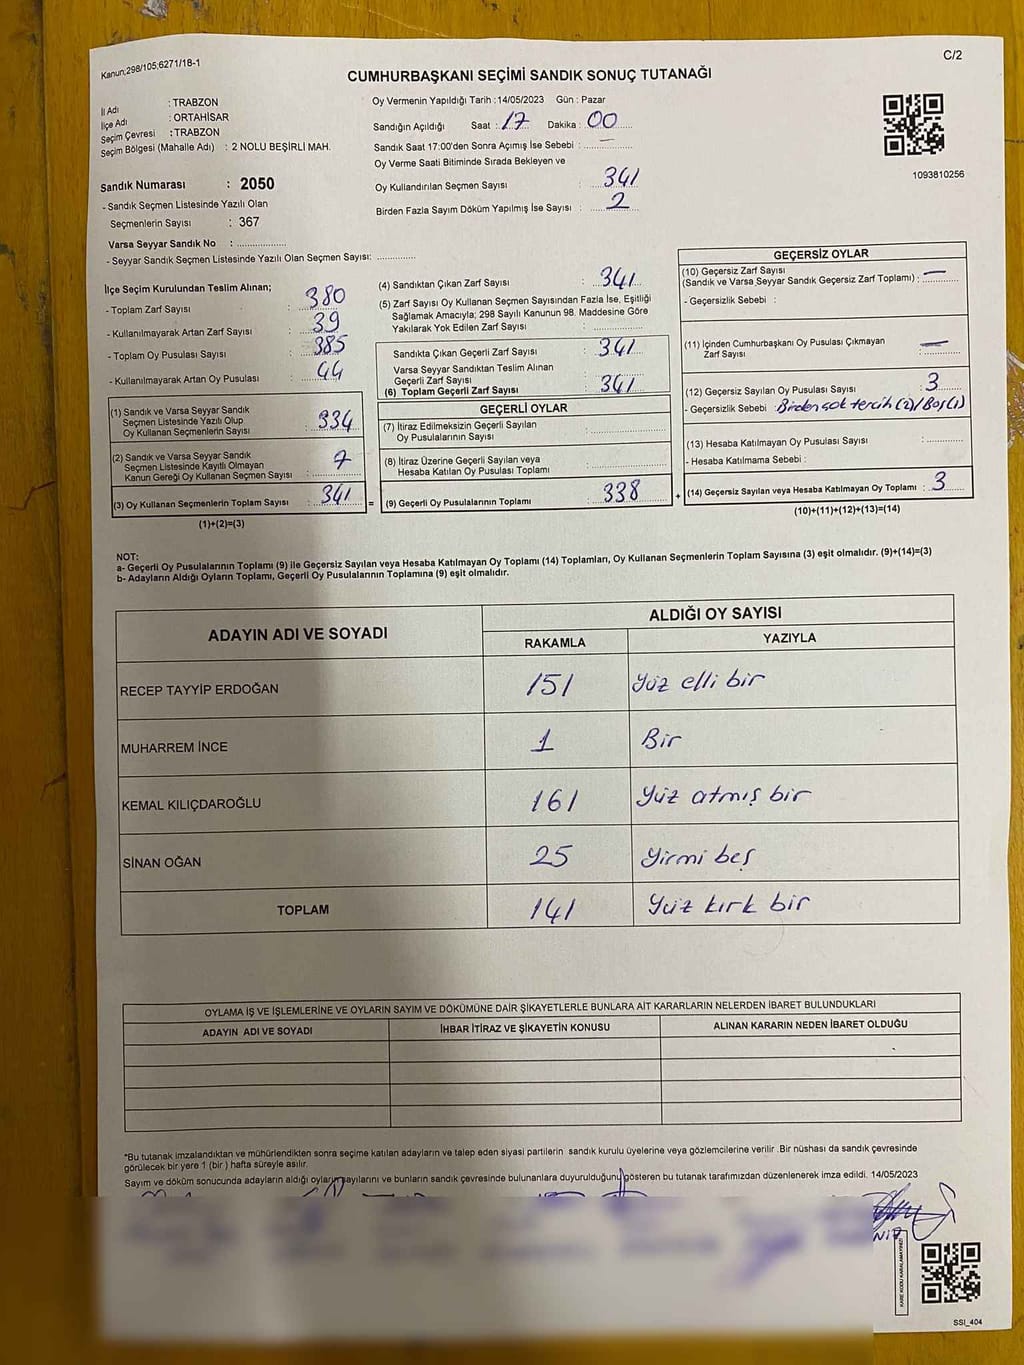 Kanun;298/105;6271/18-1
C/2
CUMHURBAŞKANI SEÇİMİ SANDIK SONUÇ TUTANAĞI
İl Adı : TRABZON
İlçe Adı : ORTAHİSAR
Seçim Çevresi : TRABZON
Seçim Bölgesi (Mahalle Adı) : 2 NOLU BEŞİRLİ MAH.
Sandık Numarası : 2050
- Sandık Seçmen Listesinde Yazılı Olan
Seçmenlerin Sayısı : 367
Varsa Seyyar Sandık No : ..................
- Seyyar Sandık Seçmen Listesinde Yazılı Olan Seçmen Sayısı: ..............
Oy Vermenin Yapıldığı Tarih :14/05/2023 Gün : Pazar
Sandığın Açıldığı Saat : 17 Dakika : 00
Sandık Saat 17:00'den Sonra Açımış İse Sebebi : —
Oy Verme Saati Bitiminde Sırada Bekleyen ve
Oy Kullandırılan Seçmen Sayısı : 341
Birden Fazla Sayım Döküm Yapılmış İse Sayısı : 2
1093810256
İlçe Seçim Kurulundan Teslim Alınan;
- Toplam Zarf Sayısı : 380
- Kullanılmayarak Artan Zarf Sayısı : 39
- Toplam Oy Pusulası Sayısı : 385
- Kullanılmayarak Artan Oy Pusulası : 44
(1) Sandık ve Varsa Seyyar Sandık
Seçmen Listesinde Yazılı Olup
Oy Kullanan Seçmenlerin Sayısı : 334
(2) Sandık ve Varsa Seyyar Sandık
Seçmen Listesinde Kayıtlı Olmayan
Kanun Gereği Oy Kullanan Seçmen Sayısı : 7
(3) Oy Kullanan Seçmenlerin Toplam Sayısı : 341 =
(1)+(2)=(3)
(4) Sandıktan Çıkan Zarf Sayısı : 341
(5) Zarf Sayısı Oy Kullanan Seçmen Sayısından Fazla İse, Eşitliği
Sağlamak Amacıyla; 298 Sayılı Kanunun 98. Maddesine Göre
Yakılarak Yok Edilen Zarf Sayısı : ..................
Sandıkta Çıkan Geçerli Zarf Sayısı : 341
Varsa Seyyar Sandıktan Teslim Alınan
Geçerli Zarf Sayısı :
(6) Toplam Geçerli Zarf Sayısı 341
GEÇERLİ OYLAR
(7) İtiraz Edilmeksizin Geçerli Sayılan
Oy Pusulalarının Sayısı : ..................
(8) İtiraz Üzerine Geçerli Sayılan veya
Hesaba Katılan Oy Pusulası Toplamı : ..................
(9) Geçerli Oy Pusulalarının Toplamı : 338 +
GEÇERSİZ OYLAR
(10) Geçersiz Zarf Sayısı
(Sandık ve Varsa Seyyar Sandık Geçersiz Zarf Toplamı) : —
- Geçersizlik Sebebi :
(11) İçinden Cumhurbaşkanı Oy Pusulası Çıkmayan
Zarf Sayısı : —
(12) Geçersiz Sayılan Oy Pusulası Sayısı : 3
- Geçersizlik Sebebi : Birden çok tercih (2) / Boş (1)
(13) Hesaba Katılmayan Oy Pusulası Sayısı : ..............
- Hesaba Katılmama Sebebi :
(14) Geçersiz Sayılan veya Hesaba Katılmayan Oy Toplamı : 3
(10)+(11)+(12)+(13)=(14)
NOT:
a- Geçerli Oy Pusulalarının Toplamı (9) ile Geçersiz Sayılan veya Hesaba Katılmayan Oy Toplamı (14) Toplamları, Oy Kullanan Seçmenlerin Toplam Sayısına (3) eşit olmalıdır. (9)+(14)=(3)
b- Adayların Aldığı Oyların Toplamı, Geçerli Oy Pusulalarının Toplamına (9) eşit olmalıdır.
ADAYIN ADI VE SOYADI
ALDIĞI OY SAYISI
RAKAMLA YAZIYLA
RECEP TAYYİP ERDOĞAN 151 Yüz elli bir
MUHARREM İNCE 1 Bir
KEMAL KILIÇDAROĞLU 161 Yüz atmış bir
SİNAN OĞAN 25 Yirmi beş
TOPLAM 141 Yüz kırk bir
OYLAMA İŞ VE İŞLEMLERİNE VE OYLARIN SAYIM VE DÖKÜMÜNE DAİR ŞİKAYETLERLE BUNLARA AİT KARARLARIN NELERDEN İBARET BULUNDUKLARI
ADAYIN ADI VE SOYADI İHBAR İTİRAZ VE ŞİKAYETİN KONUSU ALINAN KARARIN NEDEN İBARET OLDUĞU
*Bu tutanak imzalandıktan ve mühürlendikten sonra seçime katılan adayların ve talep eden siyasi partilerin sandık kurulu üyelerine veya gözlemcilerine verilir .Bir nüshası da sandık çevresinde
görülecek bir yere 1 (bir ) hafta süreyle asılır.
Sayım ve döküm sonucunda adayların aldığı oyların sayılarını ve bunların sandık çevresinde bulunanlara duyurulduğunu gösteren bu tutanak tarafımızdan düzenlenerek imza edildi. 14/05/2023
KARE KODU KARALAMAYINIZ!
SSI_404